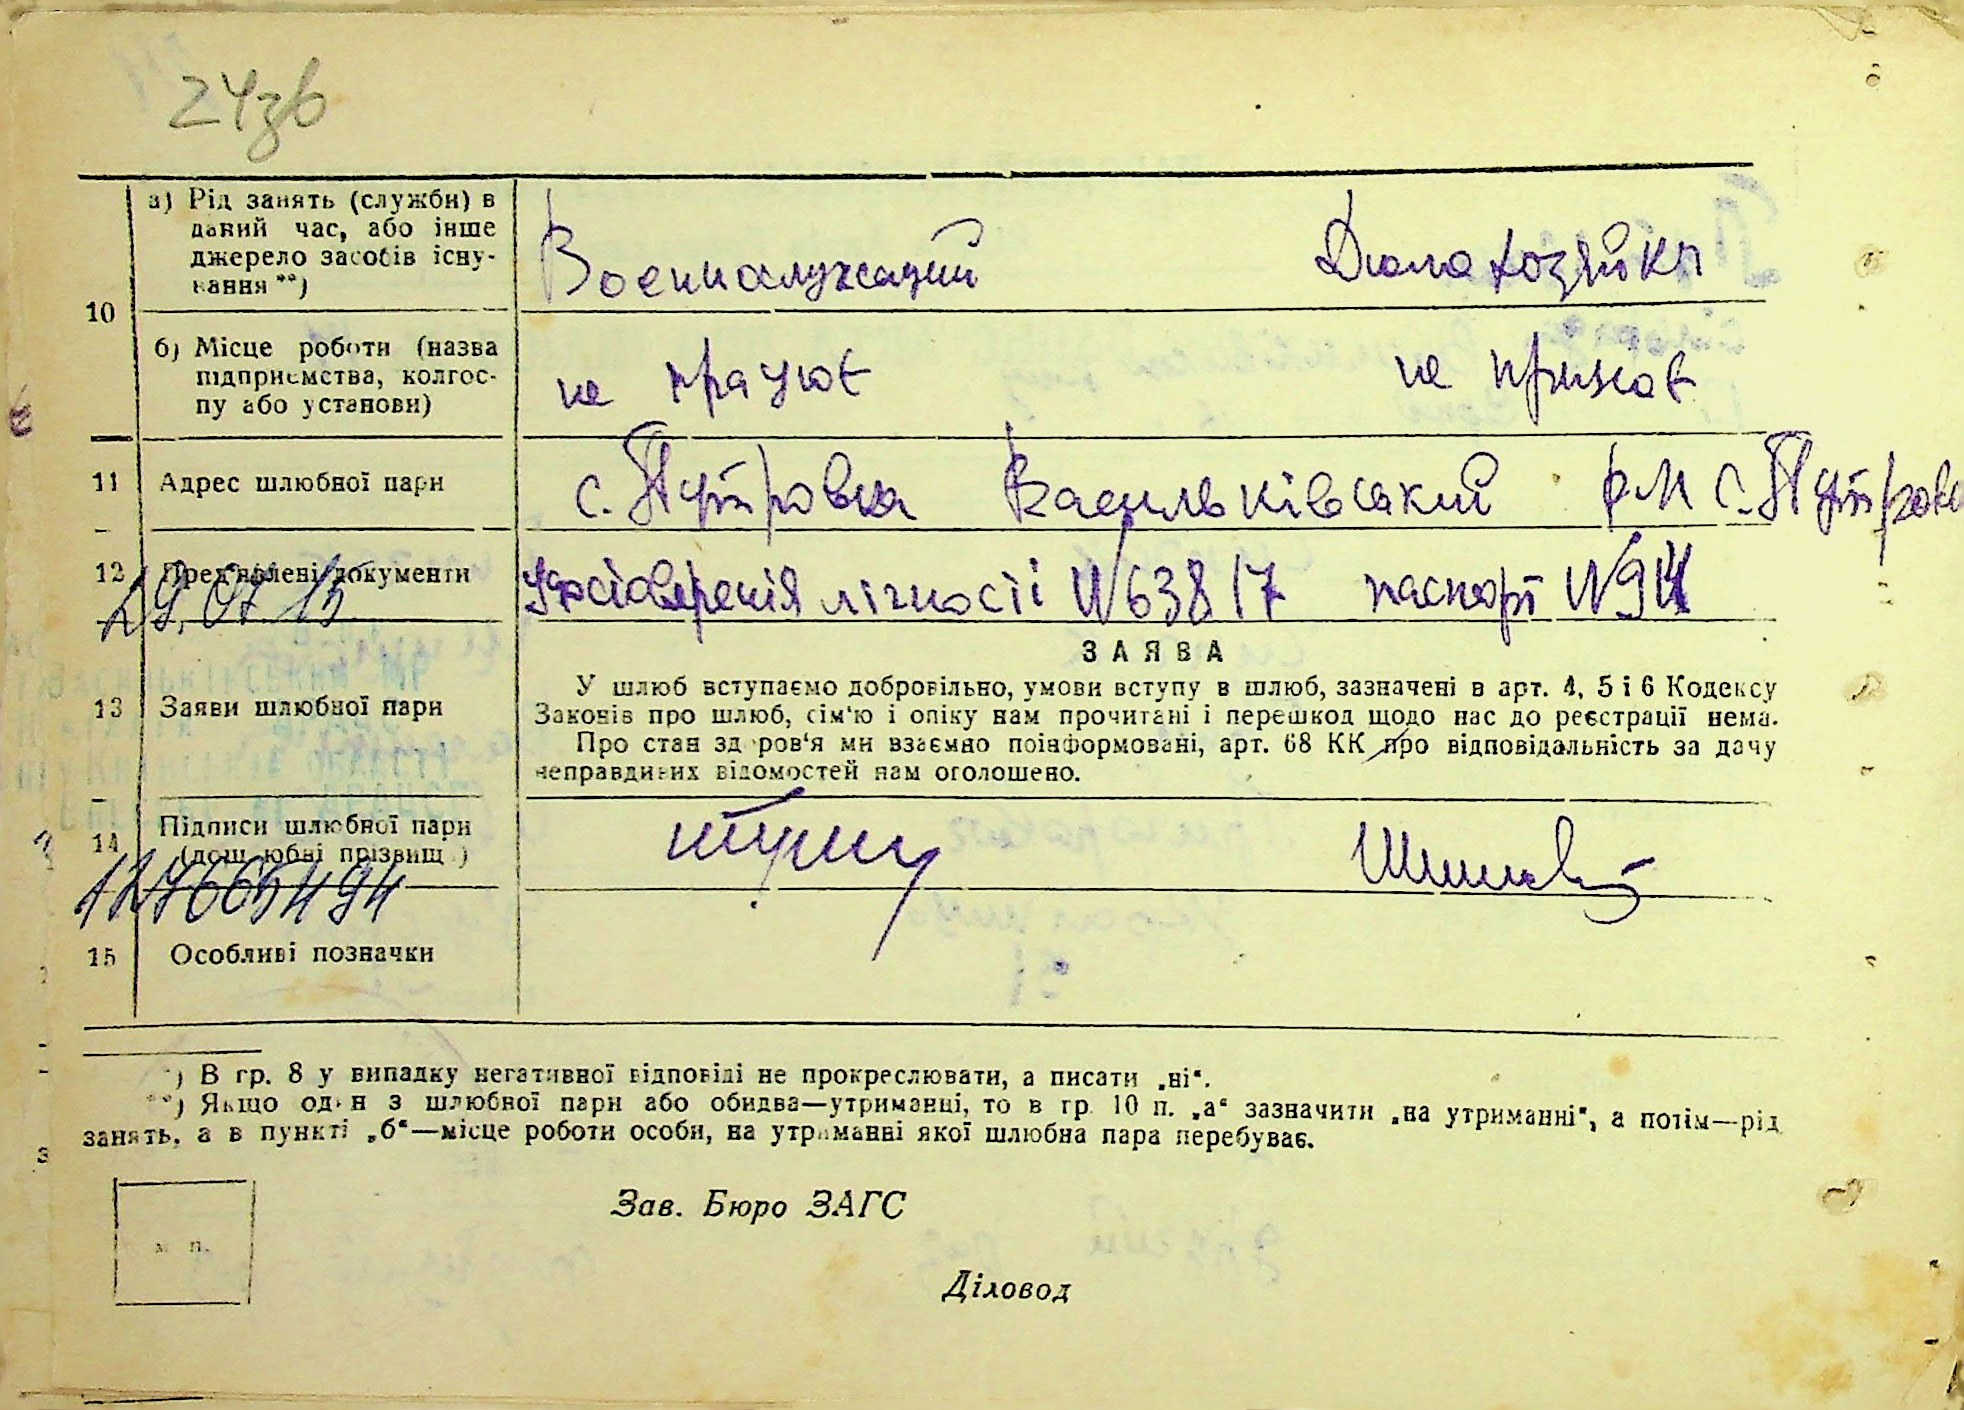 24зв
а) Рід занять (служби) в
даний час, або інше
джерело засобів існу-
вання **)
Военнослужащий Домахозяйка
10
б) Місце роботи (назва
підприємства, колгос-
пу або установи)
не працює не працює
11 Адрес шлюбної пари
с. Путровка Васильківський р-н с. Путровка
12 Пред'явлені документи
29.07.15
Удостоверенія лічності N 63817 паспорт N
ЗАЯВА
13 Заяви шлюбної пари
У шлюб вступаємо добровільно, умови вступу в шлюб, зазначені в арт. 4, 5 і 6 Кодексу
Законів про шлюб, сім'ю і опіку нам прочитані і перешкод щодо нас до реєстрації нема.
Про стан здоров'я ми взаємно поінформовані, арт. 68 КК про відповідальність за дачу
неправдивих відомостей нам оголошено.
14 Підписи шлюбної пари
(дошлюбні прізвища)
127665494
15 Особливі позначки
*) В гр. 8 у випадку негативної відповіді не прокреслювати, а писати „ні“.
**) Якщо один з шлюбної пари або обидва—утриманці, то в гр. 10 п. „а“ зазначити „на утриманні“, а потім—рід
занять, а в пункті „б“—місце роботи особи, на утриманні якої шлюбна пара перебуває.
Зав. Бюро ЗАГС
м. п.
Діловод